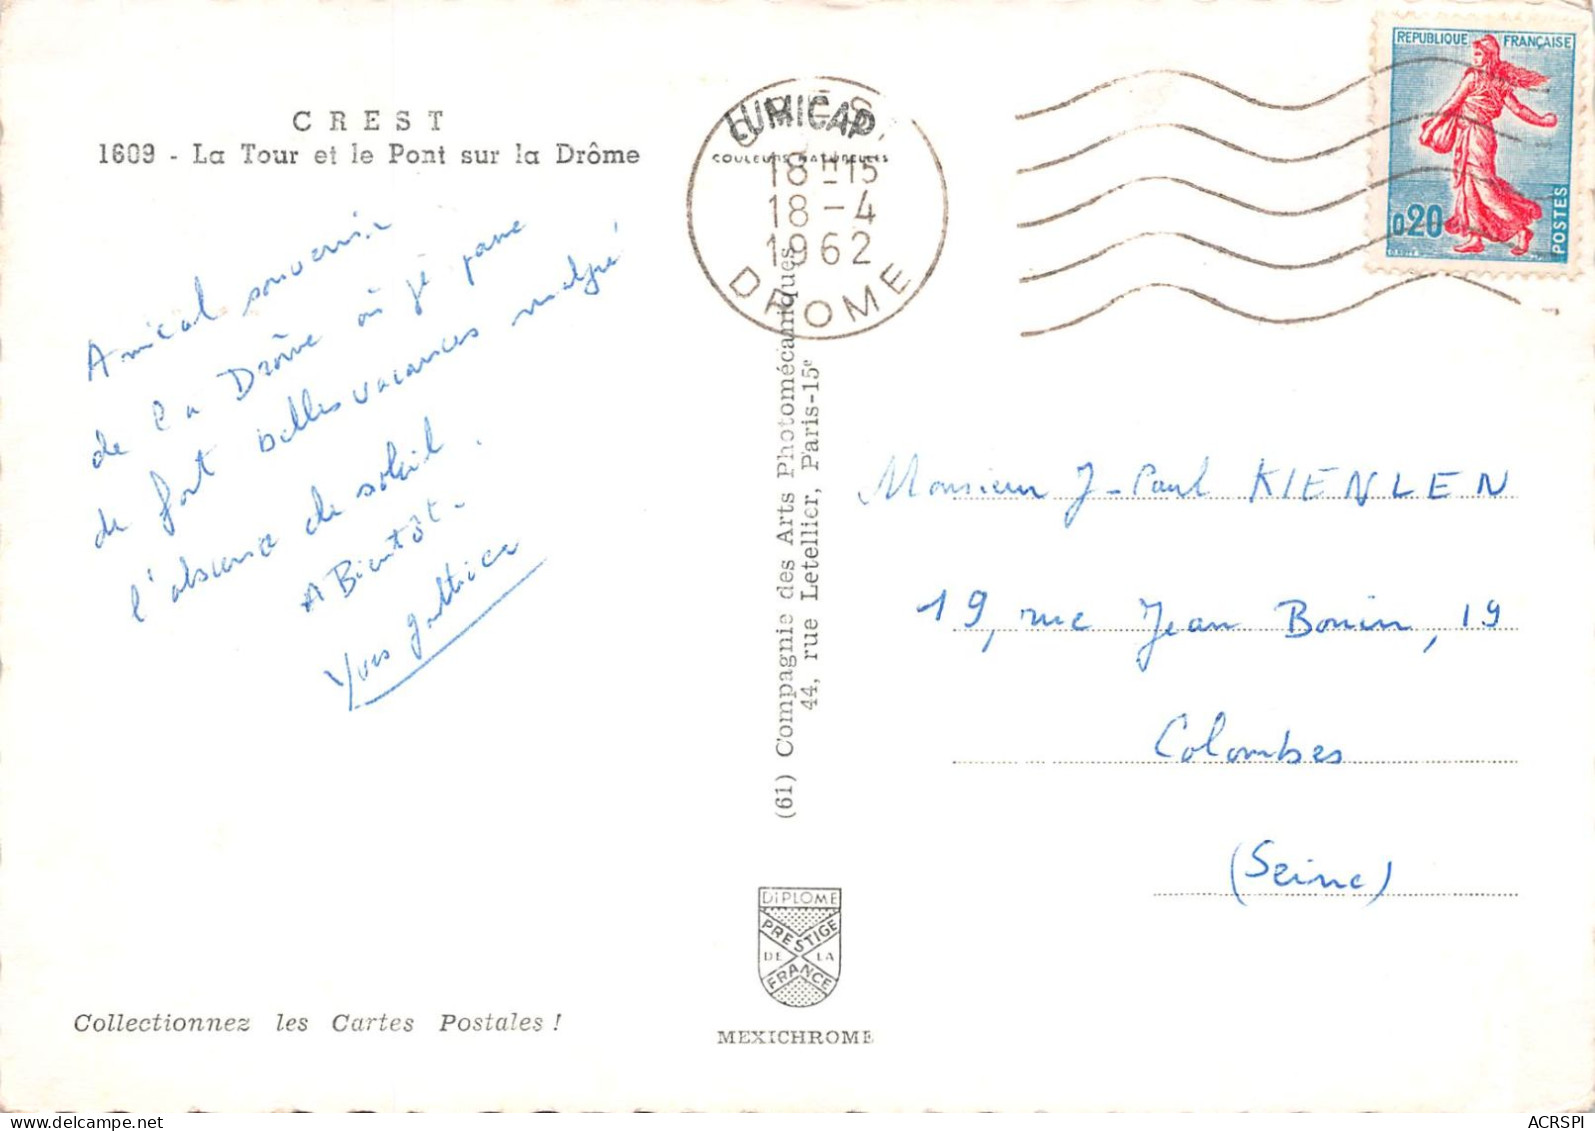 CREST
1609 - La Tour et le Pont sur la Drôme
Amical souvenir
de la Drôme où je passe
de fort belles vacances malgré
l'absence de soleil.
A Bientôt.
Yves
LUMICAP
COULEURS NATURELLES
18H15
18-4
1962
DROME
REPUBLIQUE FRANÇAISE
0,20
POSTES
(61) Compagnie des Arts Photomécaniques
44, rue Letellier, Paris-15e
Monsieur J-Paul KIENLEN
19, rue Jean Bonin, 19
Colombes
(Seine)
DIPLOME
PRESTIGE
DE LA
FRANCE
MEXICHROME
Collectionnez les Cartes Postales !
ACRSPI